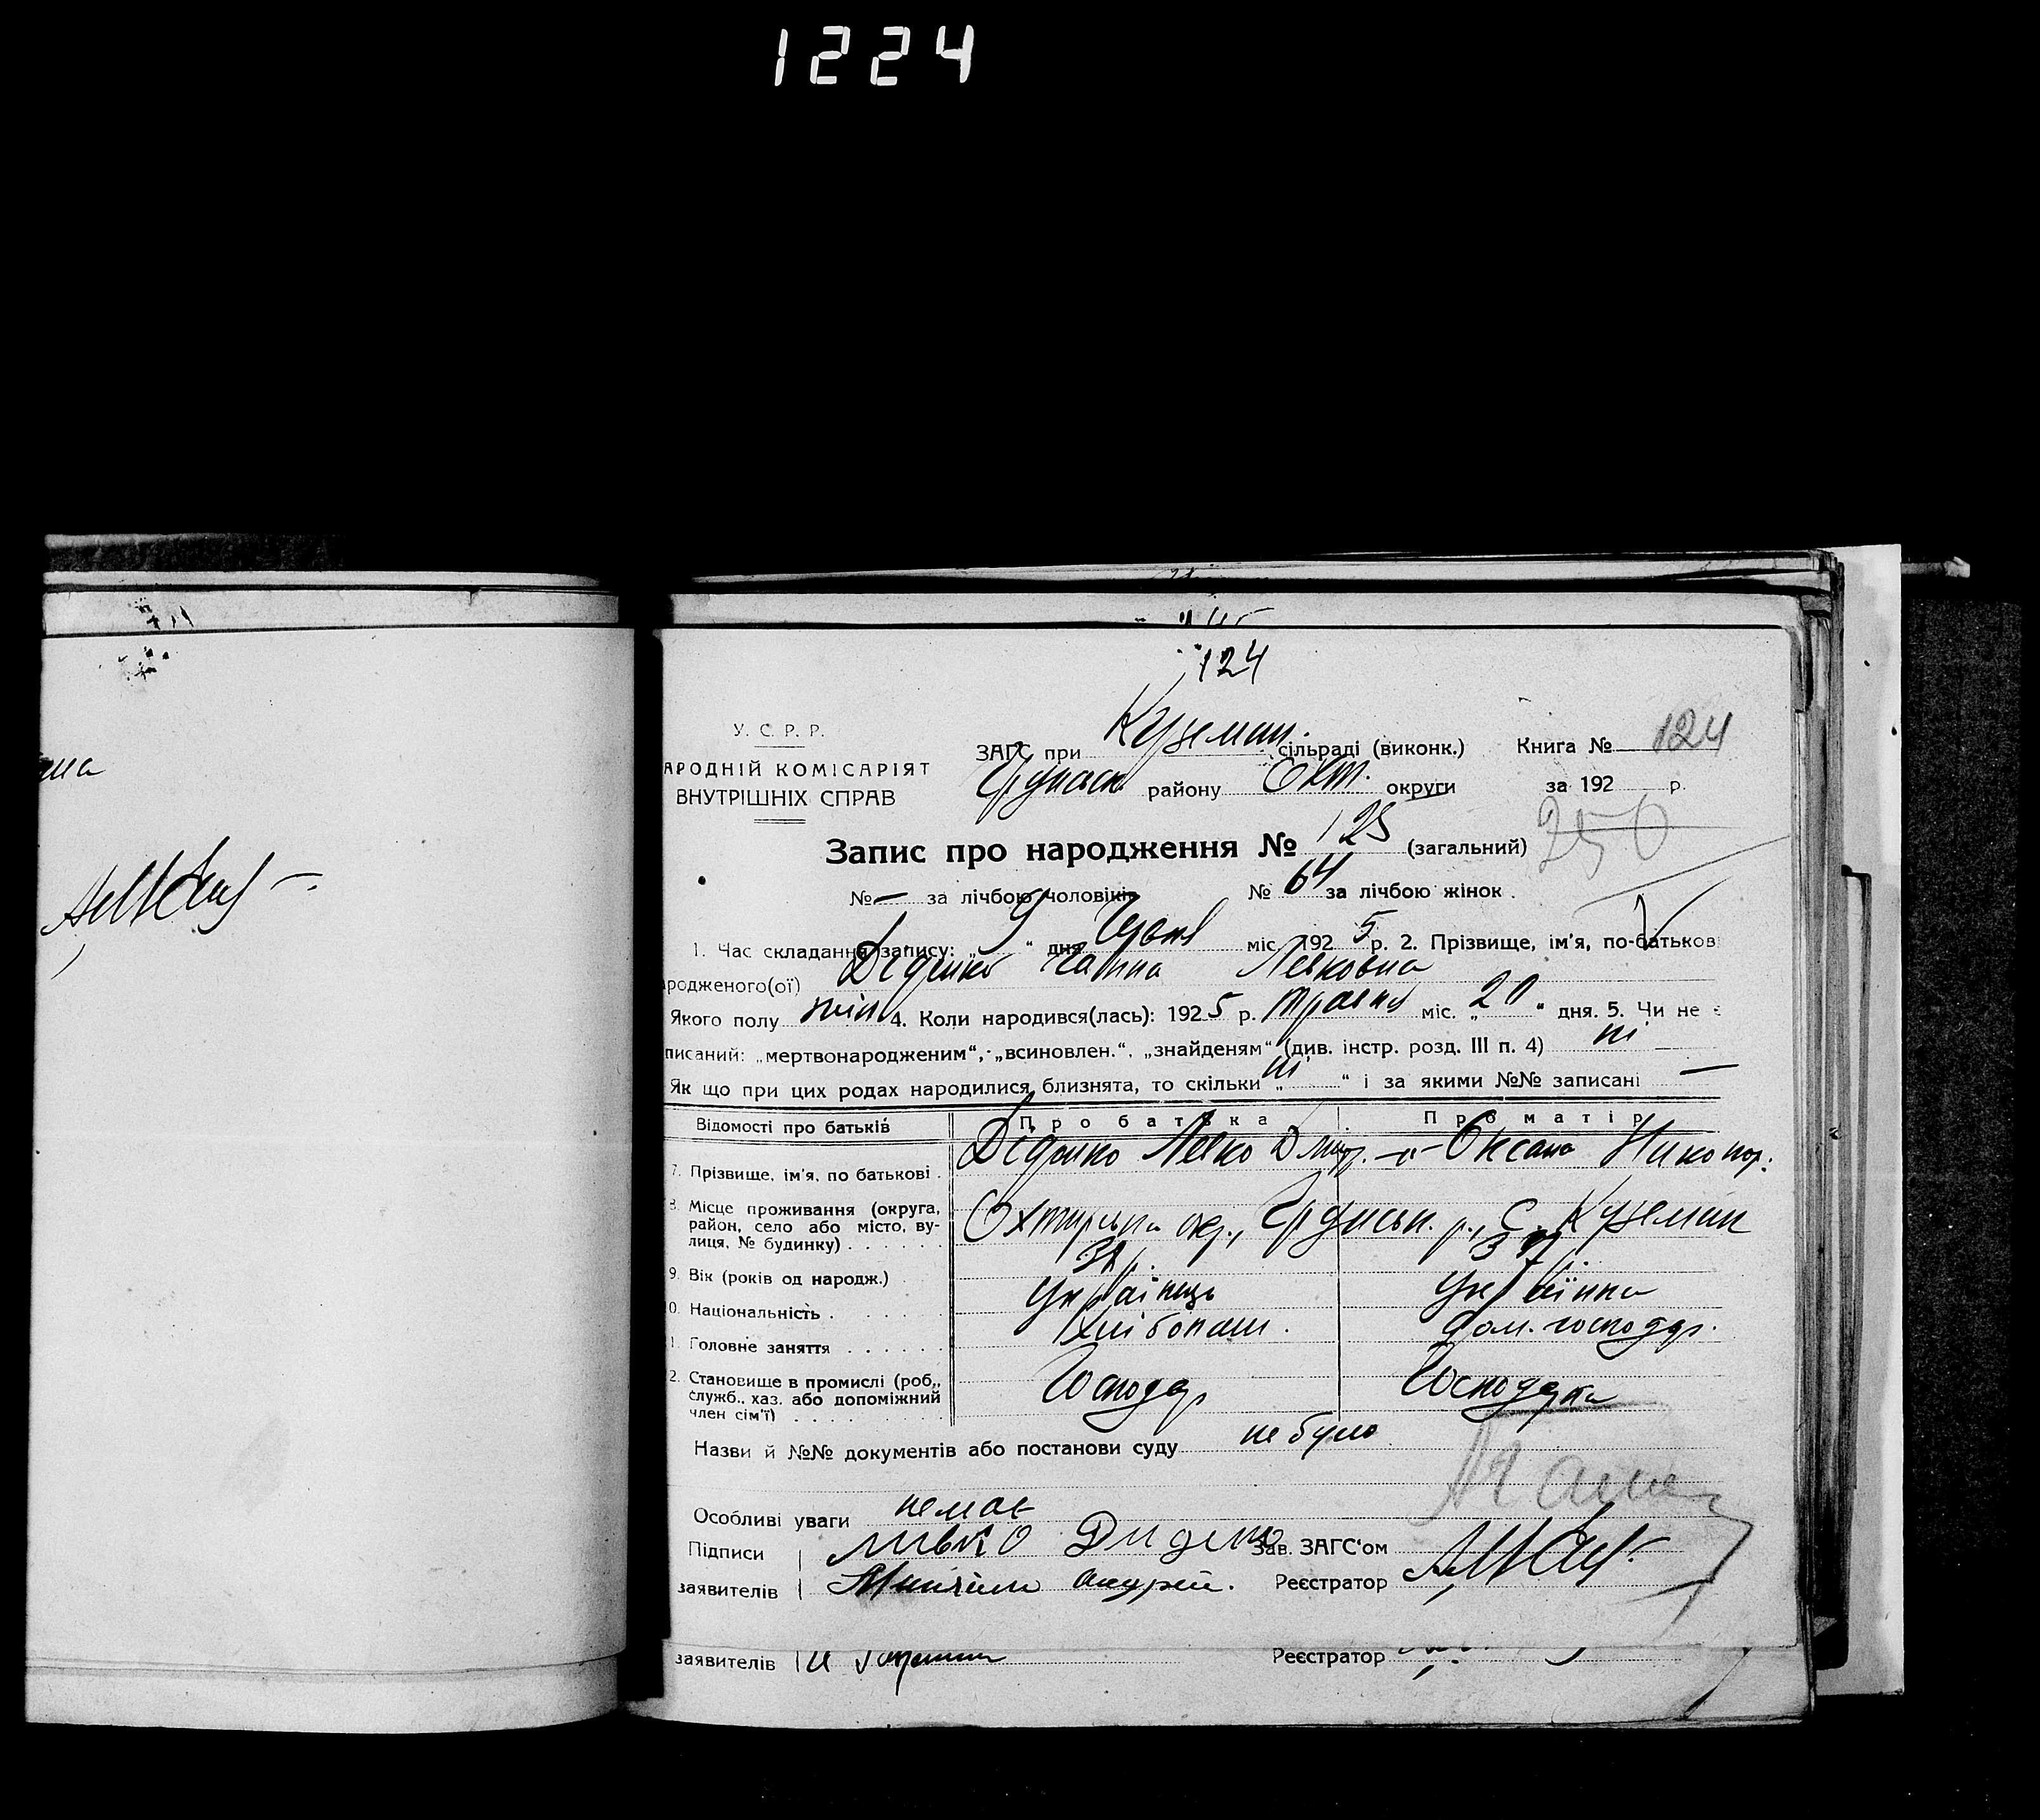 1224
124
У. С. Р. Р.
АРОДНІЙ КОМІСАРІЯТ
ВНУТРІШНІХ СПРАВ
ЗАГС при Куземин. сільраді (виконк.) Книга № 124
Грунськ району Охт. округи за 192 р.
250
Запис про народження № 125 (загальний)
№ — за лічбою чоловіків № 64 за лічбою жінок
1. Час складання запису: „ 9 “ дня Червня міс. 1925 р. 2. Прізвище, ім'я, по-батькові
родженого(ої) Діденко Ганна Левковна
Якого полу жін 4. Коли народився(лась): 1925 р. травня міс. „ 20 “ дня. 5. Чи не є
писаний: „мертвонародженим“, „всиновлен.“, „знайденям“ (див. інстр. розд. III п. 4) ні
Як що при цих родах народилися близнята, то скільки „ ні “ і за якими №№ записані —
Відомості про батьків Про батька Про матір
7. Прізвище, ім'я, по батькові . Діденко Левко Дмитр. -"- Оксана Никонор.
8. Місце проживання (округа,
район, село або місто, ву-
лиця, № будинку) . . . . . . Охтирська окр., Грунськ. р., с. Куземин
9. Вік (років од народж.)
10. Національність . Українець Українка
11. Головне заняття . . . . . . Хлібопаш. дом. господар.
12. Становище в промислі (роб.,
служб., хаз. або допоміжний
член сім'ї) Господар Господарка
Назви й №№ документів або постанови суду не було
Особливі уваги немає
Підписи Ливко Диденко Зав. ЗАГС'ом
заявителів Андрей. Реєстратор
заявителів Реєстратор